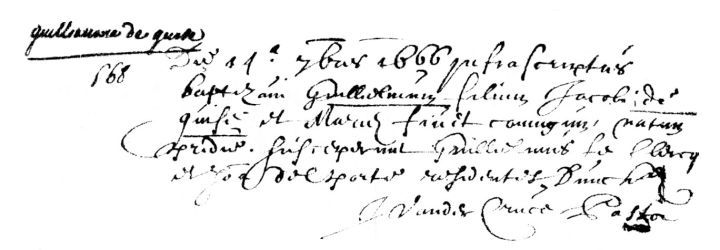 guillaume de quise
168
Die 11ª 7bris 1666 infrascriptus
baptizavi Guillielmum filium Jacobi de
quise et Mariæ coniugum, natum
pridie. susceperunt Guillielmus le Clercq
et delporte residentes
J Vander Cruce Pastor